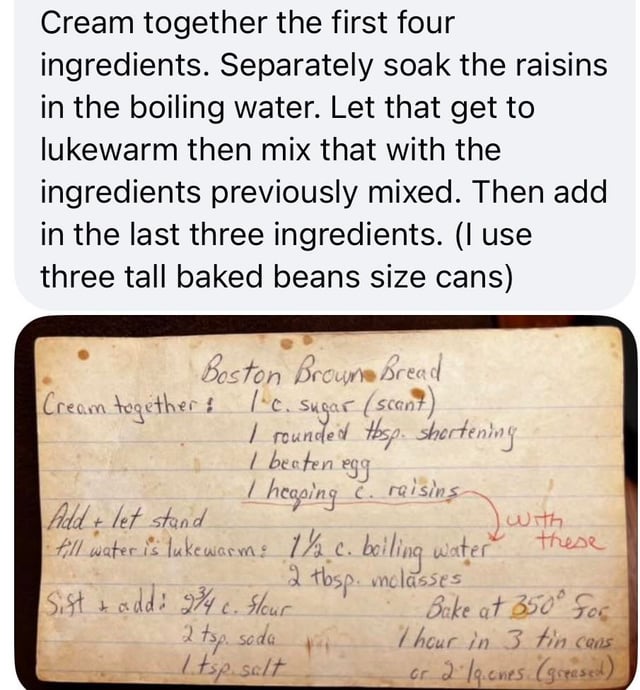 Cream together the first four
ingredients. Separately soak the raisins
in the boiling water. Let that get to
lukewarm then mix that with the
ingredients previously mixed. Then add
in the last three ingredients. (I use
three tall baked beans size cans)
Boston Brown Bread
Cream together: 1 c. sugar (scant)
1 rounded tbsp. shortening
1 beaten egg
1 heaping c. raisins
Add + let stand with
till water is lukewarm: 1 1/2 c. boiling water these
2 tbsp. molasses
Sift + add: 2 3/4 c. flour Bake at 350° for
2 tsp. soda 1 hour in 3 tin cans
1 tsp. salt or 2 lg. ones. (greased)